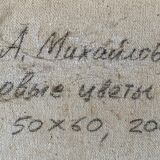 А. Михайлов
овые цветы
50х60, 20